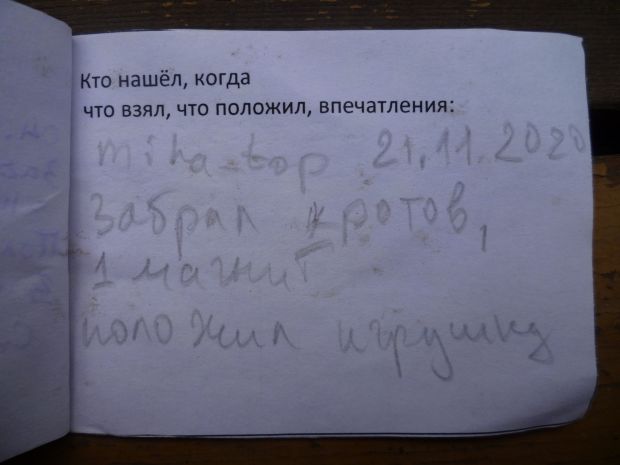 Кто нашёл, когда
что взял, что положил, впечатления:
miha_top 21.11.2020
Забрал кротов,
1 магнит
положил игрушку